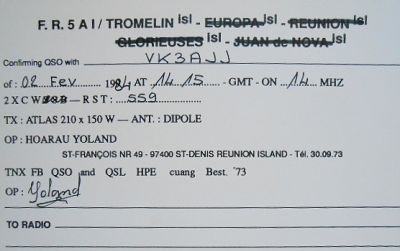 F. R. 5 A I / TROMELIN isl - EUROPA isl - REUNION isl
GLORIEUSES isl - JUAN de NOVA isl
Confirming QSO with VK3AJJ
of : 02 Fev 1984 AT 14 15 - GMT - ON 14 MHZ
2 X C W SSB — R S T : 559
TX : ATLAS 210 x 150 W — ANT. : DIPOLE
OP : HOARAU YOLAND
ST-FRANÇOIS NR 49 - 97400 ST-DENIS REUNION ISLAND - Tél. 30.09.73
TNX FB QSO and QSL HPE cuang Best. '73
OP : Yoland
TO RADIO